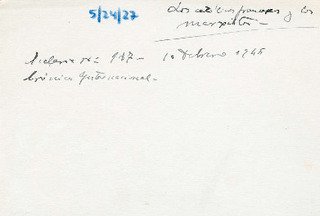 5/24/27
Los católicos franceses y los
marxistas -
nº 917 - 1º Febrero 1946
Crónica Internacional -